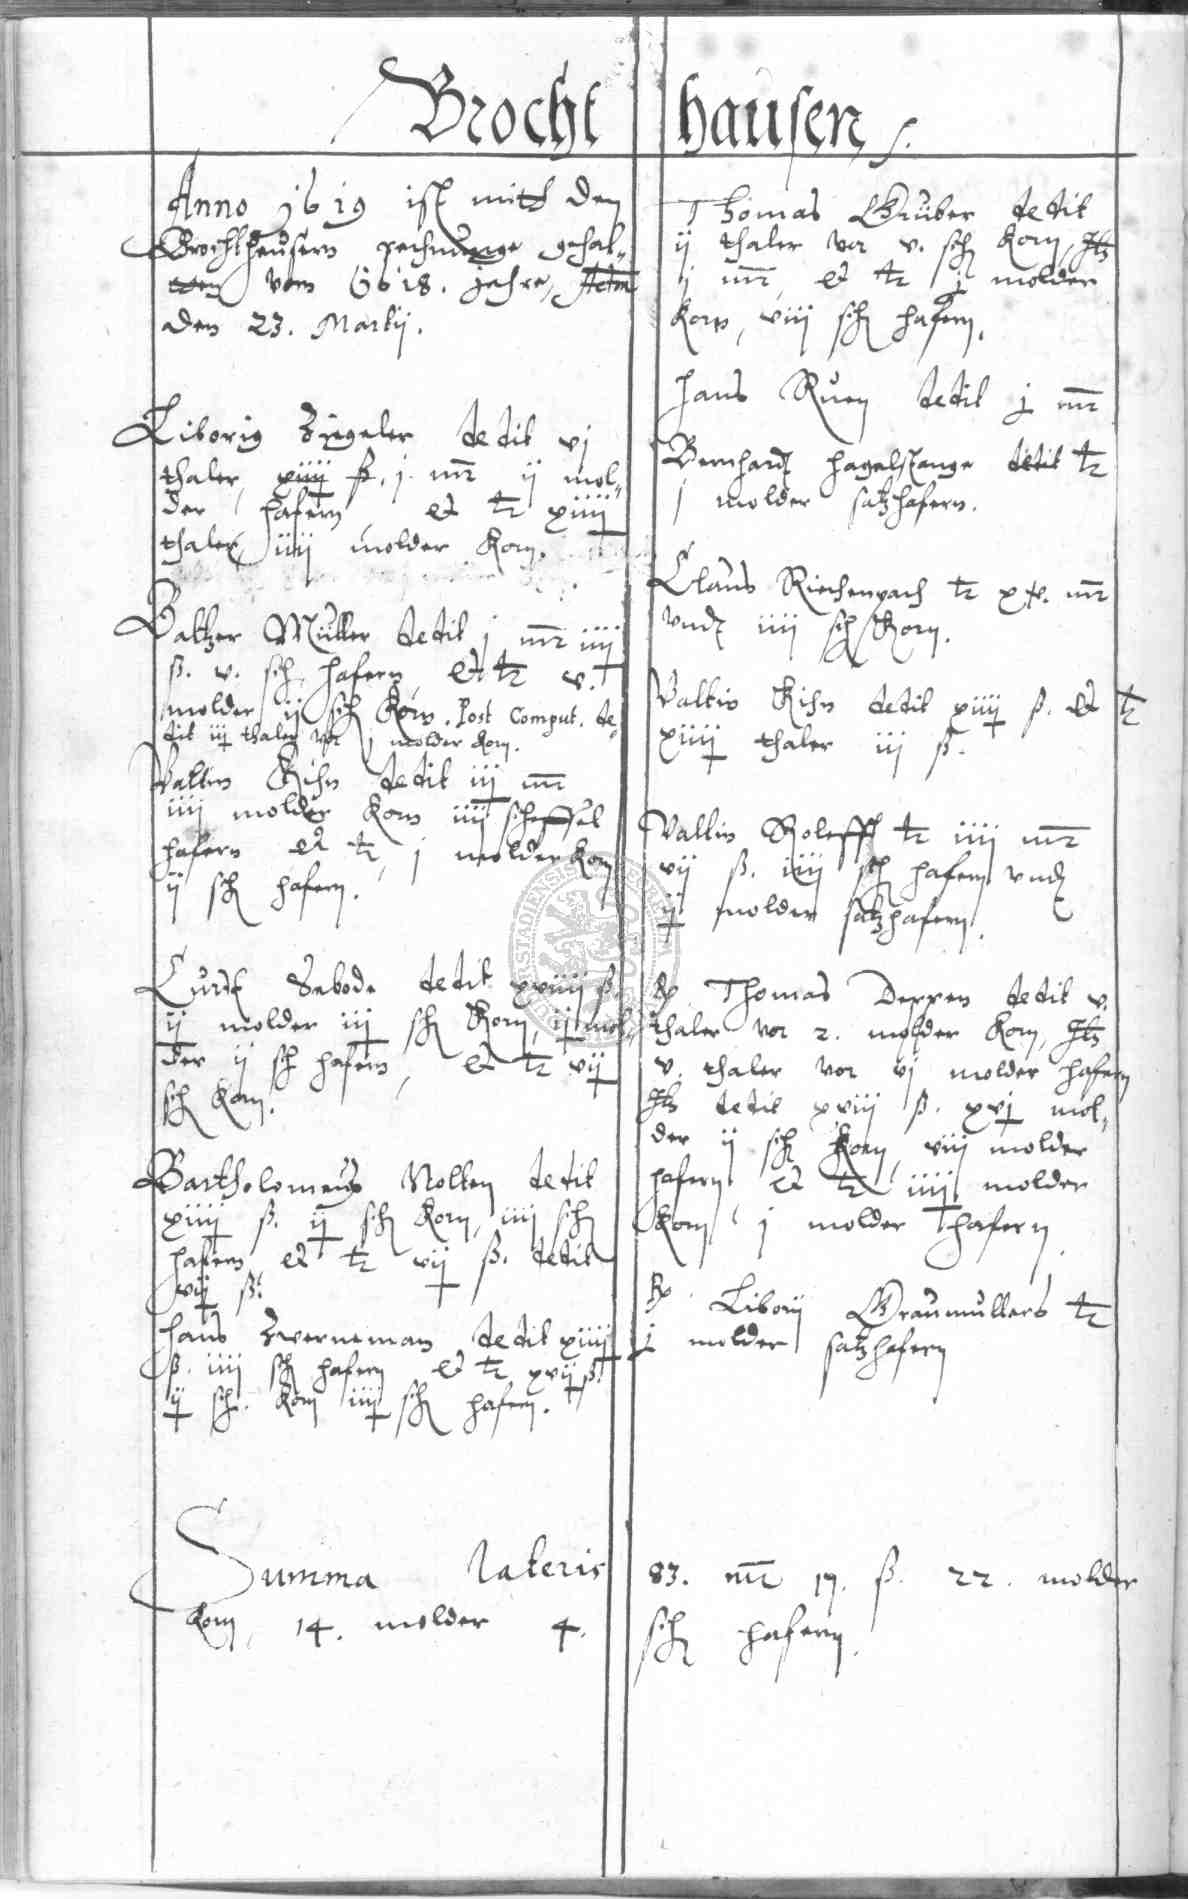 Brochthausen
Anno 1619 ist mitt den
Brochtheusern rechnunge gehal¬
tten vom 1618. Jahre, Actum
den 23. Martij.
Liborig Zigeler dedit vj
thaler, xiiij ß. j. mr ij mol¬
der hafern, et tr xiiij
thaler, iiij molder Korn.
Baltzer Müller dedit j mr iiij
ß. v. sch hafern, et tr v.
molder ij sch Korn. Post Comput. de¬
dit iij thaler vor j molder Korn.
Valtin Kihn dedit iij mr
iiij molder Korn iiij scheffel
hafern et tr, j molder Korn
ij sch hafern.
Curdt Sebode dedit xviiij ß.
ij molder iij sch Korn, ij mol¬
der ij sch hafern, et tr vij
sch Korn.
Bartholomeus Nolten dedit
xiiij ß. ij sch Korn, iiij sch
hafern et tr vij ß. dedit
vij ß.
Hans Zwerneman dedit xiiij
ß. iiij sch hafern et tr xvij ß.
ij sch. Korn iiij sch hafern.
Thomas Gruber dedit
ij thaler vor v. sch Korn, Itz
j mr, et tr j molder
Korn, viij sch hafern.
Hans Ruen dedit j mr
Bernhardt Hagelstange dedit tr
j molder satzhafern.
Claus Riechenpach tr xv. mr
vndt iiij sch Korn.
Valtin Kihn dedit xiiij ß. et tr
xiiij thaler iij ß.
Valtin Roleff tr iiij mr
vij ß. iiij sch hafern vndt
ij molder satzhafern.
Thomas Deppen dedit v.
thaler vor 2. molder Korn, Itz
v. thaler vor vj molder hafern
Itz dedit xviij ß. xvj mol¬
der ij sch Korn, viij molder
hafern et tr iiij molder
Korn j molder hafern.
Liborij Graumullers tr
j molder satzhafern
Summa lateris 83. mr 17. ß. 22. molder
Korn, 14. molder 4. sch hafern.